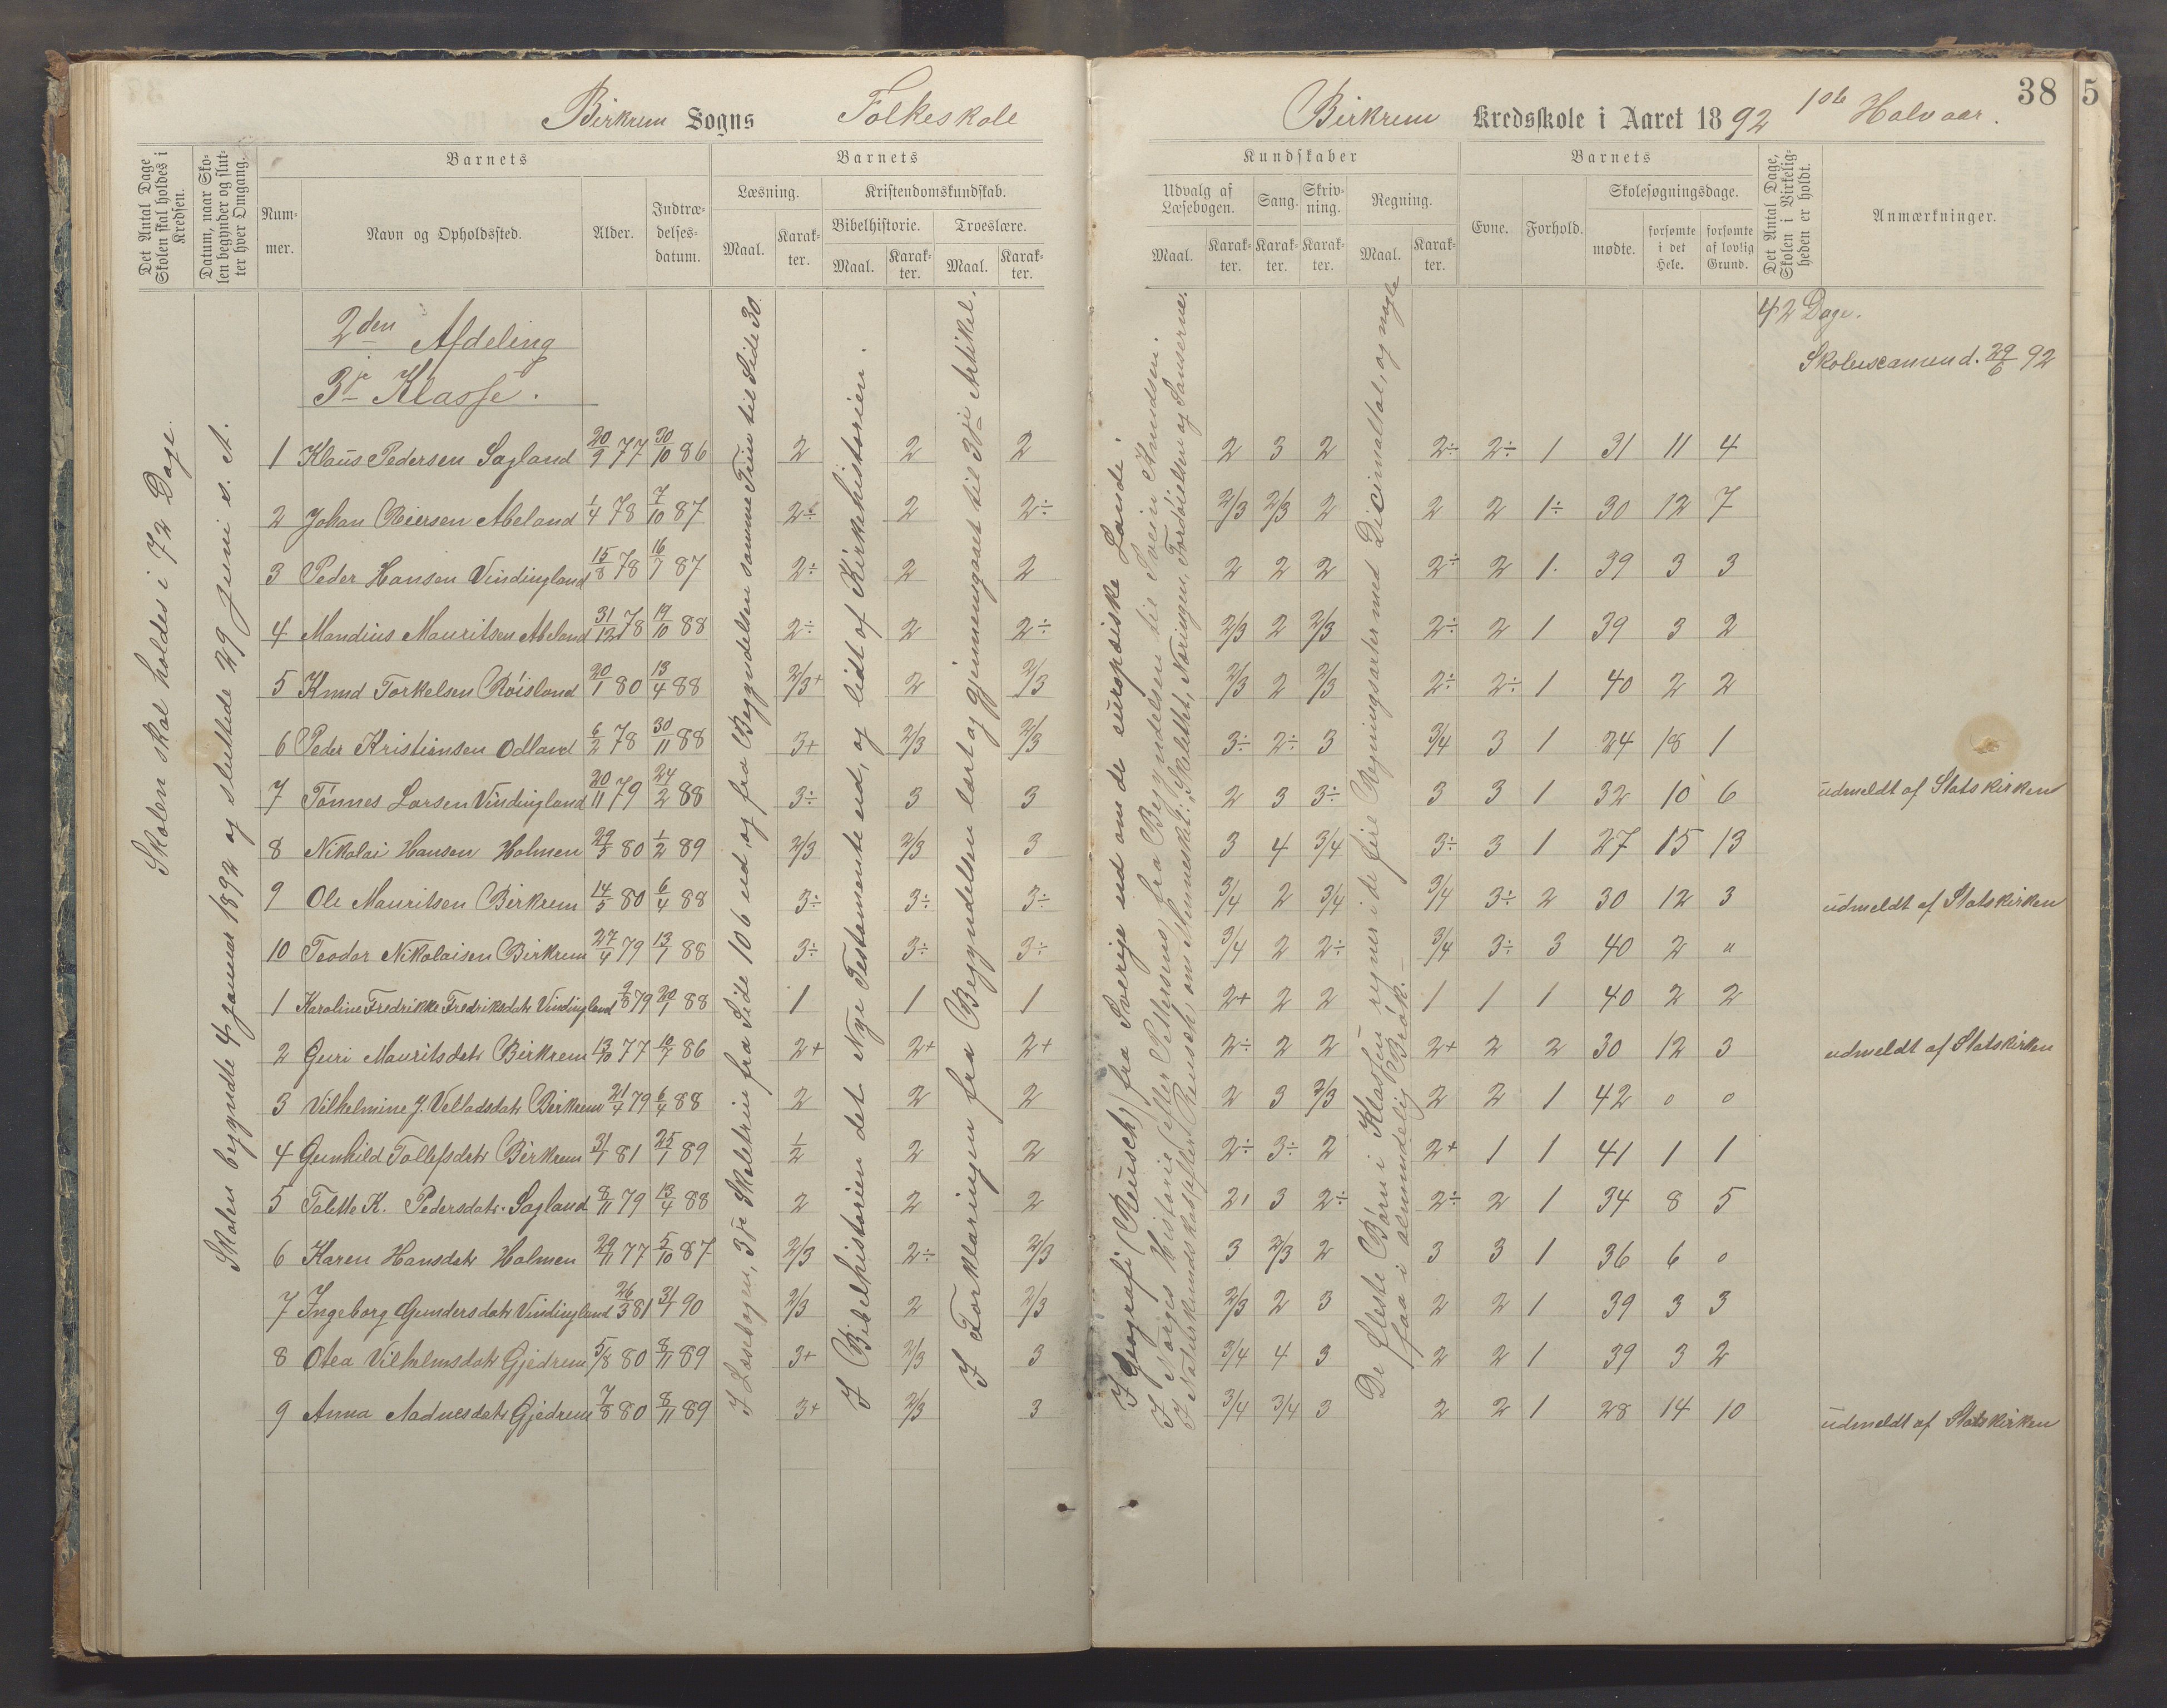 Birkrem Sogns Folkeskole
Det Antal Dage Skolen skal holdes i Kredsen.
Datum, naar Skolen begynder og slutter hver Omgang.
Barnets
Nummer.
Navn og Opholdssted.
Alder.
Indtrædelsesdatum.
Barnets
Læsning.
Maal.
Karakter.
Kristendomskundskab.
Bibelhistorie.
Maal.
Karakter.
Troeslære.
Maal.
Karakter.
Skolen skal holdes i 72 Dage.
Skolen begyndte 4 januar 1892 og sluttede 29 juni s. A.
2den Afdeling
3je Klasse.
I Læsebogen, 3je Skoletrin fra Side 106 ud, og fra Begyndelsen samme Trin til Side 30.
I Bibelhistorien det Nye Testamente ud, og lidt af Kirkehistorien.
I Forklaringen fra Begyndelsen lært og gjennemgaaet til 3die Artikel.
1 Klaus Pedersen Sagland 20/9 77 30/10 86 2 2 2
2 Johan Reiersen Abeland 1/4 78 7/10 87 2÷ 2 2÷
3 Peder Hansen Vindingland 15/8 78 16/7 87 2÷ 2 2
4 Mandius Mauritsen Abeland 31/12 78 19/10 88 2÷ 2 2÷
5 Knud Torkelsen Röisland 20/1 80 13/4 88 2/3+ 2 2/3
6 Peder Kristiensen Odland 6/2 78 30/11 88 3+ 2/3 2/3
7 Tönnes Larsen Vindingland 20/11 79 24/2 88 3÷ 3 3
8 Nikolai Hansen Holmen 29/3 80 1/2 89 2/3 2/3 3
9 Ole Mauritsen Birkrem 14/5 80 6/4 88 3÷ 3÷ 3÷
10 Teodor Nikolaisen Birkrem 27/4 79 13/7 88 3÷ 3÷ 3÷
1 Karoline Fredrikke Fredriksdatr Vindingland 9/8 79 20/7 88 1 1 1
2 Guri Mauritsdatr Birkrem 13/10 77 10/7 86 2+ 2+ 2+
3 Vilhelmine J. Velladsdatr Birkrem 21/4 79 6/4 88 2 2 2
4 Gunhild Tollefsdatr Birkrem 31/1 81 25/1 89 1/2 2 2
5 Talette K. Pedersdatr. Sagland 8/11 79 13/4 88 2 2 2
6 Karen Hansdatr Holmen 29/11 77 5/10 87 2/3 2÷ 2/3
7 Ingeborg Gundersdatr Vindingland 26/3 81 31/1 90 2/3 2 2/3
8 Otea Vilhelmsdatr Gjedrem 5/8 80 8/11 89 3+ 2/3 3
9 Anna Aadnesdatr Gjedrem 7/8 80 8/11 89 3+ 2/3 3
38
5
Birkrem Kredsskole i Aaret 1892 1ste Halvaar.
Kundskaber
Udvalg af Læsebogen.
Maal.
Karakter.
Sang.
Karakter.
Skrivning.
Karakter.
Regning.
Maal.
Karakter.
Barnets
Evne.
Forhold.
Skolesøgningsdage.
mødte.
forsømte i det Hele.
forsømte af lovlig Grund.
Det Antal Dage, Skolen i Virkeligheden er holdt.
Anmærkninger.
42 Dage.
Skoleexamen d. 29/6 92
I Geografi (Reusch) fra Sverige ud om de europæiske Lande.
I Norges Historie efter Pettersens, fra Begyndelsen til Svein Knudsen.
I Naturkundskab efter Reusch, om Mennesket: Skelettet, Næringen, Fordöielsen og Sanserne.
De fleste Börn i Klassen regner i de fire Regningsarter med Dicimaltal, og nogle faa i almindelig Brök.
2 3 2 2÷ 2÷ 1 31 11 4
2/3 2/3 2 2 2 1÷ 30 12 7
2 2 2 2÷ 2 1. 39 3 3
2/3 2 2/3 2÷ 2 1 39 3 2
2/3 2 2/3 2÷ 2÷ 1 40 2 2
3÷ 2÷ 3 3/4 3 1 24 18 1
2 3 3÷ 3 3 1 32 10 6 udmeldt af Statskirken
3 4 3/4 3÷ 3 1 27 15 13
3/4 2 3/4 3/4 3÷ 2 30 12 3 udmeldt af Statskirken
3/4 2 2÷ 3/4 3÷ 3 40 2 "
2+ 2 2 1 1 1 40 2 2
2÷ 2 2 2+ 2 2 30 12 3 udmeldt af Statskirken
2 3 2/3 2 2 1 42 0 0
2÷ 3÷ 2 2+ 1 1 41 1 1
2 3 2÷ 2÷ 2 1 34 8 5
3 2/3 2 3 3 1 36 6 0
2/3 2 3 2 2 1 39 3 3
3/4 4 3 2 2 1 39 3 2
3/4 3/4 3 2 2 1 28 14 10 udmeldt af Statskirken